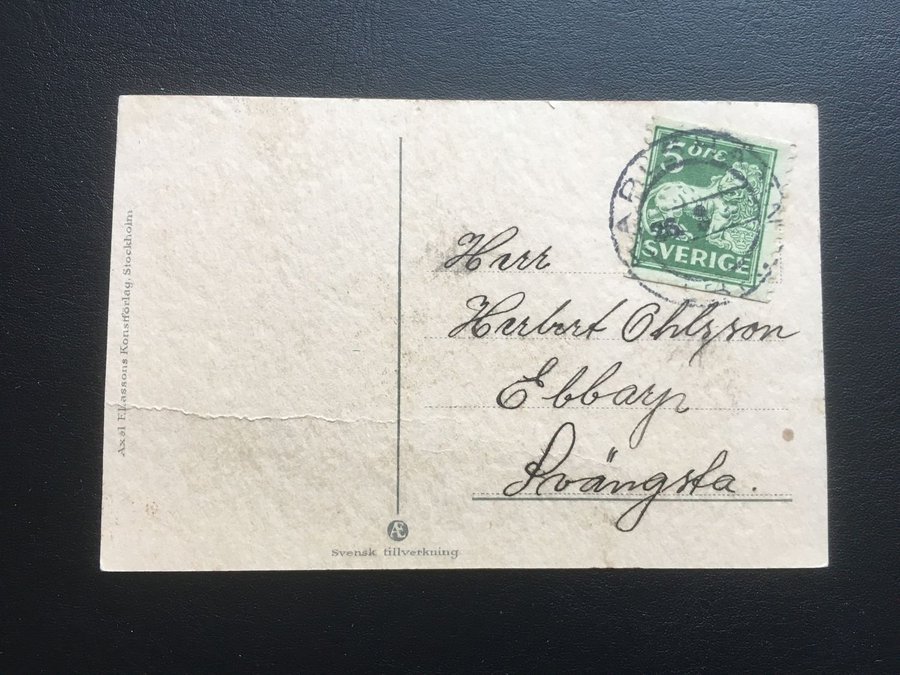 Axel Eliassons Konstförlag, Stockholm
5 ÖRE
SVERIGE
Herr
Herbert Ohlsson
Ebbarp
Svängsta.
Æ
Svensk tillverkning